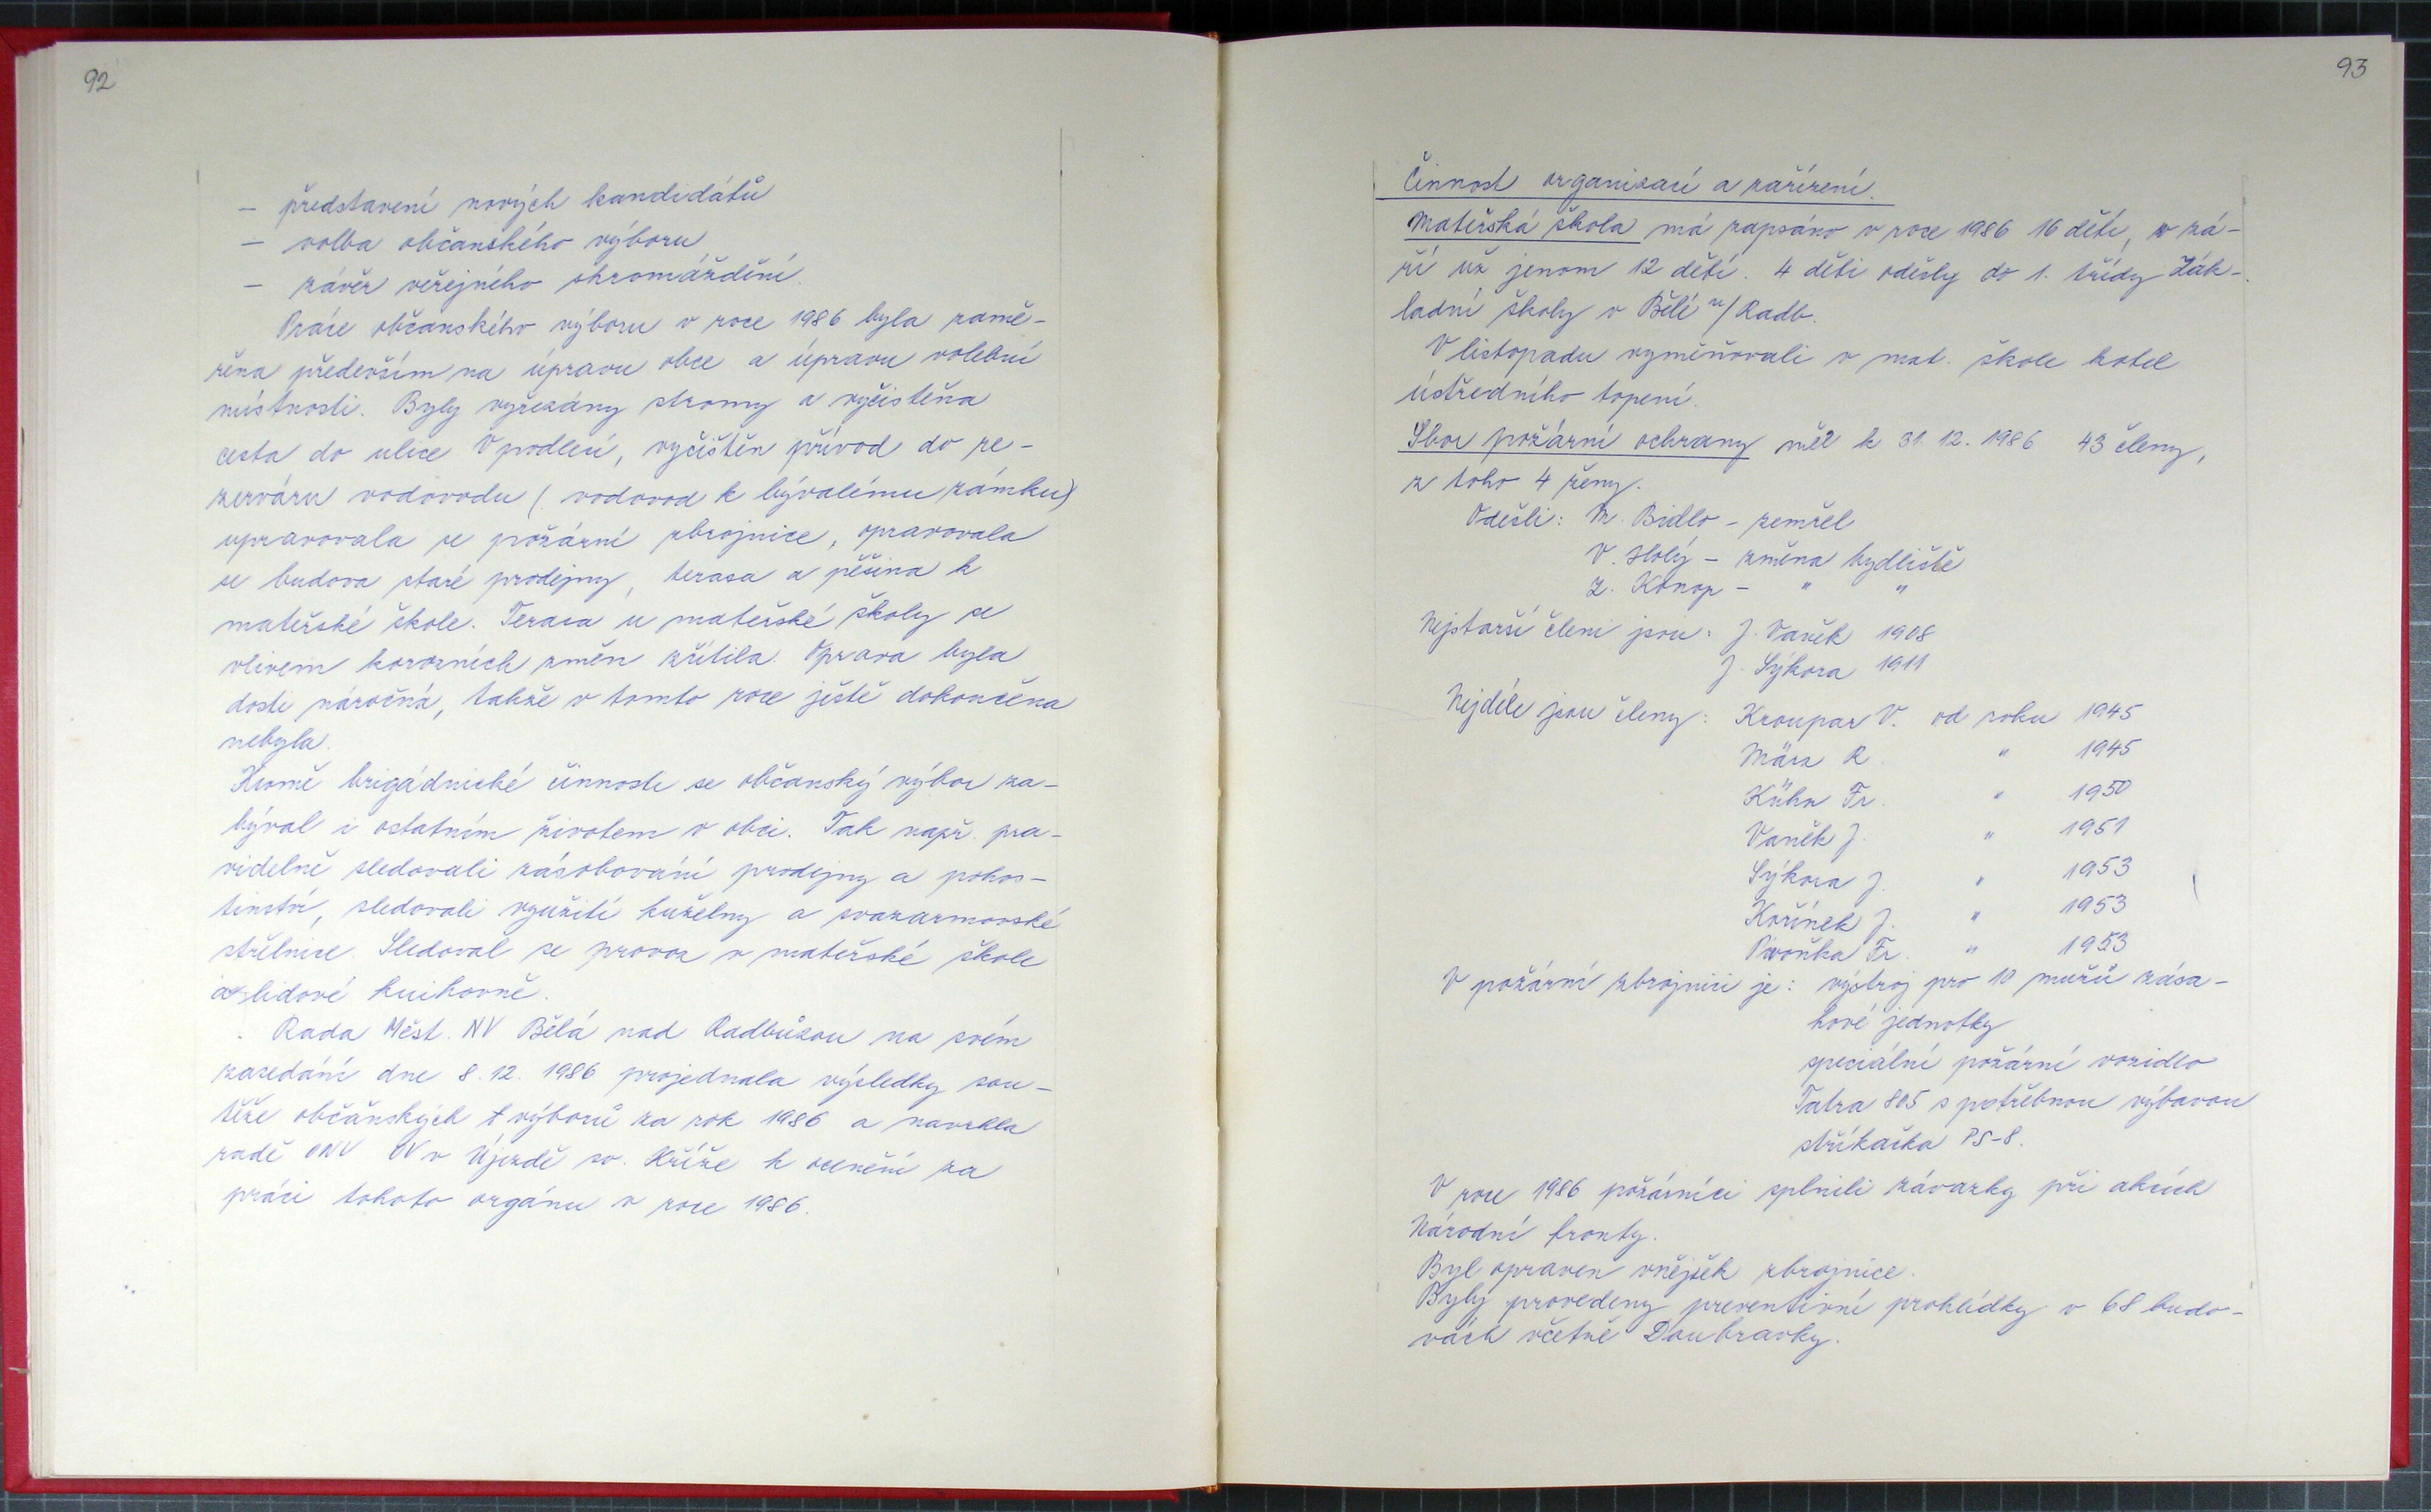 92
- představení nových kandidátů
- volba občanského výboru
- závěr veřejného shromáždění.
Práce občanského výboru v roce 1986 byla zamě-
řena především na úpravu obce a úpravu volební
místnosti. Byly vyřezány stromy a vyčistěna
cesta do ulice V podlesí, vyčištěn přívod do re-
zerváru vodovodu (vodovod k bývalému zámku)
upravovala se požární zbrojnice, opravovala
se budova staré prodejny, terasa a pěšina k
mateřské škole. Terasa u mateřské školy se
vlivem korozních změn zřítila. Oprava byla
dosti náročná, takže v tomto roce ještě dokončena
nebyla.
Kromě brigádnické činnosti se občanský výbor za-
býval i ostatním životem v obci. Tak např. pra-
videlně sledovali zásobování prodejny a pohos-
tinství, sledovali využití kuželny a svazarmovské
střelnice. Sledoval se provoz v mateřské škole
a lidové knihovně.
Rada Měst. NV Bělá nad Radbuzou na svém
zasedání dne 8.12. 1986 projednala výsledky sou-
těže občanských výborů za rok 1986 a navrhla
radě ONV OV v Újezdě sv. Kříže k ocenění za
práci tohoto orgánu v roce 1986.
93
Činnost organizací a zařízení.
Mateřská škola má zapsáno v roce 1986 16 dětí, v zá-
ří už jenom 12 dětí. 4 děti odešly do 1. třídy Zák-
ladní školy v Bělé n/Radb.
V listopadu vyměňovali v mat. škole kotel
ústředního topení.
Sbor požární ochrany měl k 31. 12. 1986 43 členy,
z toho 4 ženy.
Odešli: M. Bidlo - zemřel
V. Holý - změna bydliště
Z. Konop - " "
Nejstarší členi jsou: J. Vaněk 1908
J. Sýkora 1911
Nejdéle jsou členy: Kroupar V. od roku 1945
März R. " 1945
Kühn Fr. " 1950
Vaněk J. " 1951
Sýkora J. " 1953
Kořínek J. " 1953
Pivoňka Fr. " 1953
V požární zbrojnici je: výstroj pro 10 mužů zása-
hové jednotky
speciální požární vozidlo
Tatra 805 s potřebnou výbavou
stříkačka PS-8.
V roce 1986 požárníci splnili závazky při akcích
Národní fronty.
Byl opraven vnějšek zbrojnice.
Byly provedeny preventivní prohlídky v 68 budo-
vách včetně Doubravky.